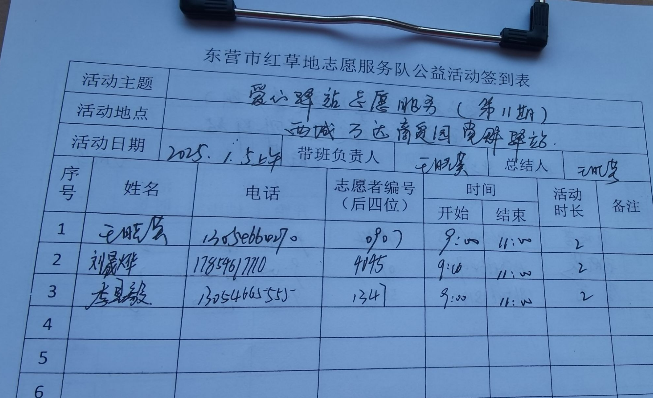 东营市红草地志愿服务队公益活动签到表
活动主题 爱心驿站志愿服务(第11期)
活动地点 西城万达商圈园党群驿站
活动日期 2025.1.5上午 带班负责人 总结人
序号 姓名 电话 志愿者编号(后四位) 时间 开始 结束 活动时长 备注
1 0907 9:00 11:00 2
2 17859617710 4195 9:00 11:00 2
3 13054665555 1347 9:00 11:00 2
4
5
6